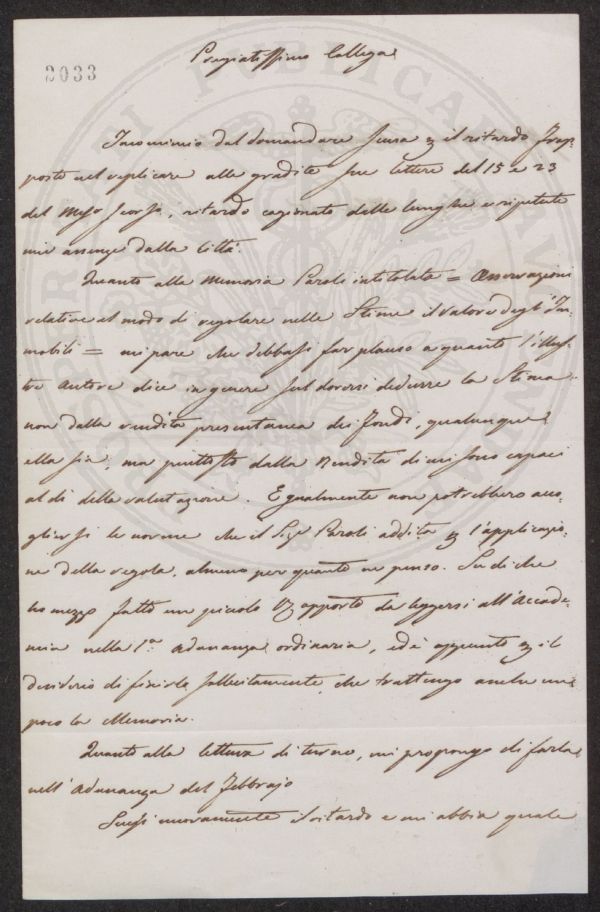 2033
Pregiatissimo Collega
Incomincio dal domandare scusa per il ritardo frap-
posto nel replicare alle gradite sue lettere del 15 e 23
del Mese scorso, ritardo cagionato dalle lunghe e ripetute
mie assenze dalla Città.
Quanto alla Memoria Paroli intitolata = Osservazioni
relative al modo di regolare nelle Stime il valore degl'Im-
mobili = mi pare che debbasi far plauso a quanto l'illus-
tre Autore dice in genere sul doversi dedurre la Stima
non dalla rendita presentanea dei fondi, qualunque
ella sia, ma piuttosto dalla Rendita di cui sono capaci
al dì della valutazione. Egualmente non potrebbero acco-
gliersi le norme che il Sigr Paroli addita per l'applicazio-
ne della regola, almeno per quanto ne penso. Su di che
ho mezzo fatto un piccolo Rapporto da leggersi all'Accade-
mia nella 1a Adunanza ordinaria, ed è appunto per il
desiderio di finirlo sollecitamente, che trattengo anche un
poco la Memoria.
Quanto alla lettura di turno, mi propongo di farla
nell'Adunanza del Febbrajo
Scusi nuovamente il ritardo e mi abbia quale